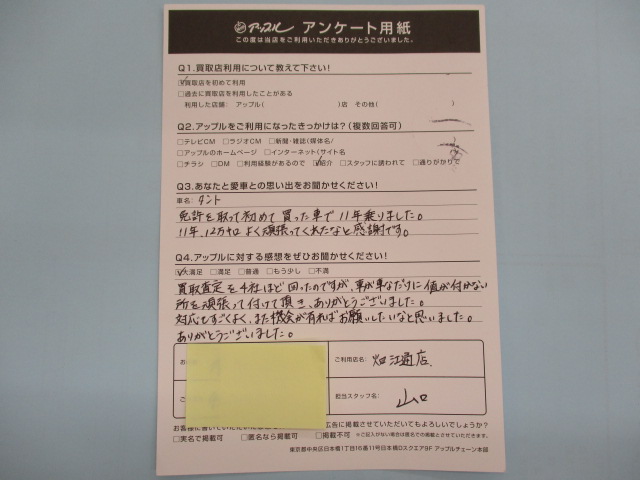 アップル アンケート用紙
この度は当店をご利用いただきありがとうございました。
Q1.買取店利用について教えて下さい!
☑買取店を初めて利用
□過去に買取店を利用したことがある
利用した店舗: アップル( )店 その他( )
Q2.アップルをご利用になったきっかけは?(複数回答可)
□テレビCM □ラジオCM □新聞・雑誌(媒体名/
□アップルのホームページ □インターネット(サイト名
□チラシ □DM □利用経験があるので ☑紹介 □スタッフに誘われて □通りがかりで
Q3.あなたと愛車との思い出をお聞かせください!
車名: タント
免許を取って初めて買った車で11年乗りました。
11年、12万キロよく頑張ってくれたなと感謝です。
Q4.アップルに対する感想をぜひお聞かせください!
☑大満足 □満足 □普通 □もう少し □不満
買取査定を4社ほど回ったのですが、車が車なだけに値が付かない
所を頑張って付けて頂き、ありがとうございました。
対応もすごくよく、また機会が有ればお願いしたいなと思いました。
ありがとうございました。
お
ご利用店名: 畑江通店
ご
担当スタッフ名: 山口
お客様に書いていただいた 広告に掲載させていただいてもよろしいでしょうか?
□実名で掲載可 □匿名なら掲載可 □掲載不可 ※ご記入がない場合は匿名での掲載とさせていただきます。
東京都中央区日本橋1丁目16番11号日本橋Dスクエア9F アップルチェーン本部